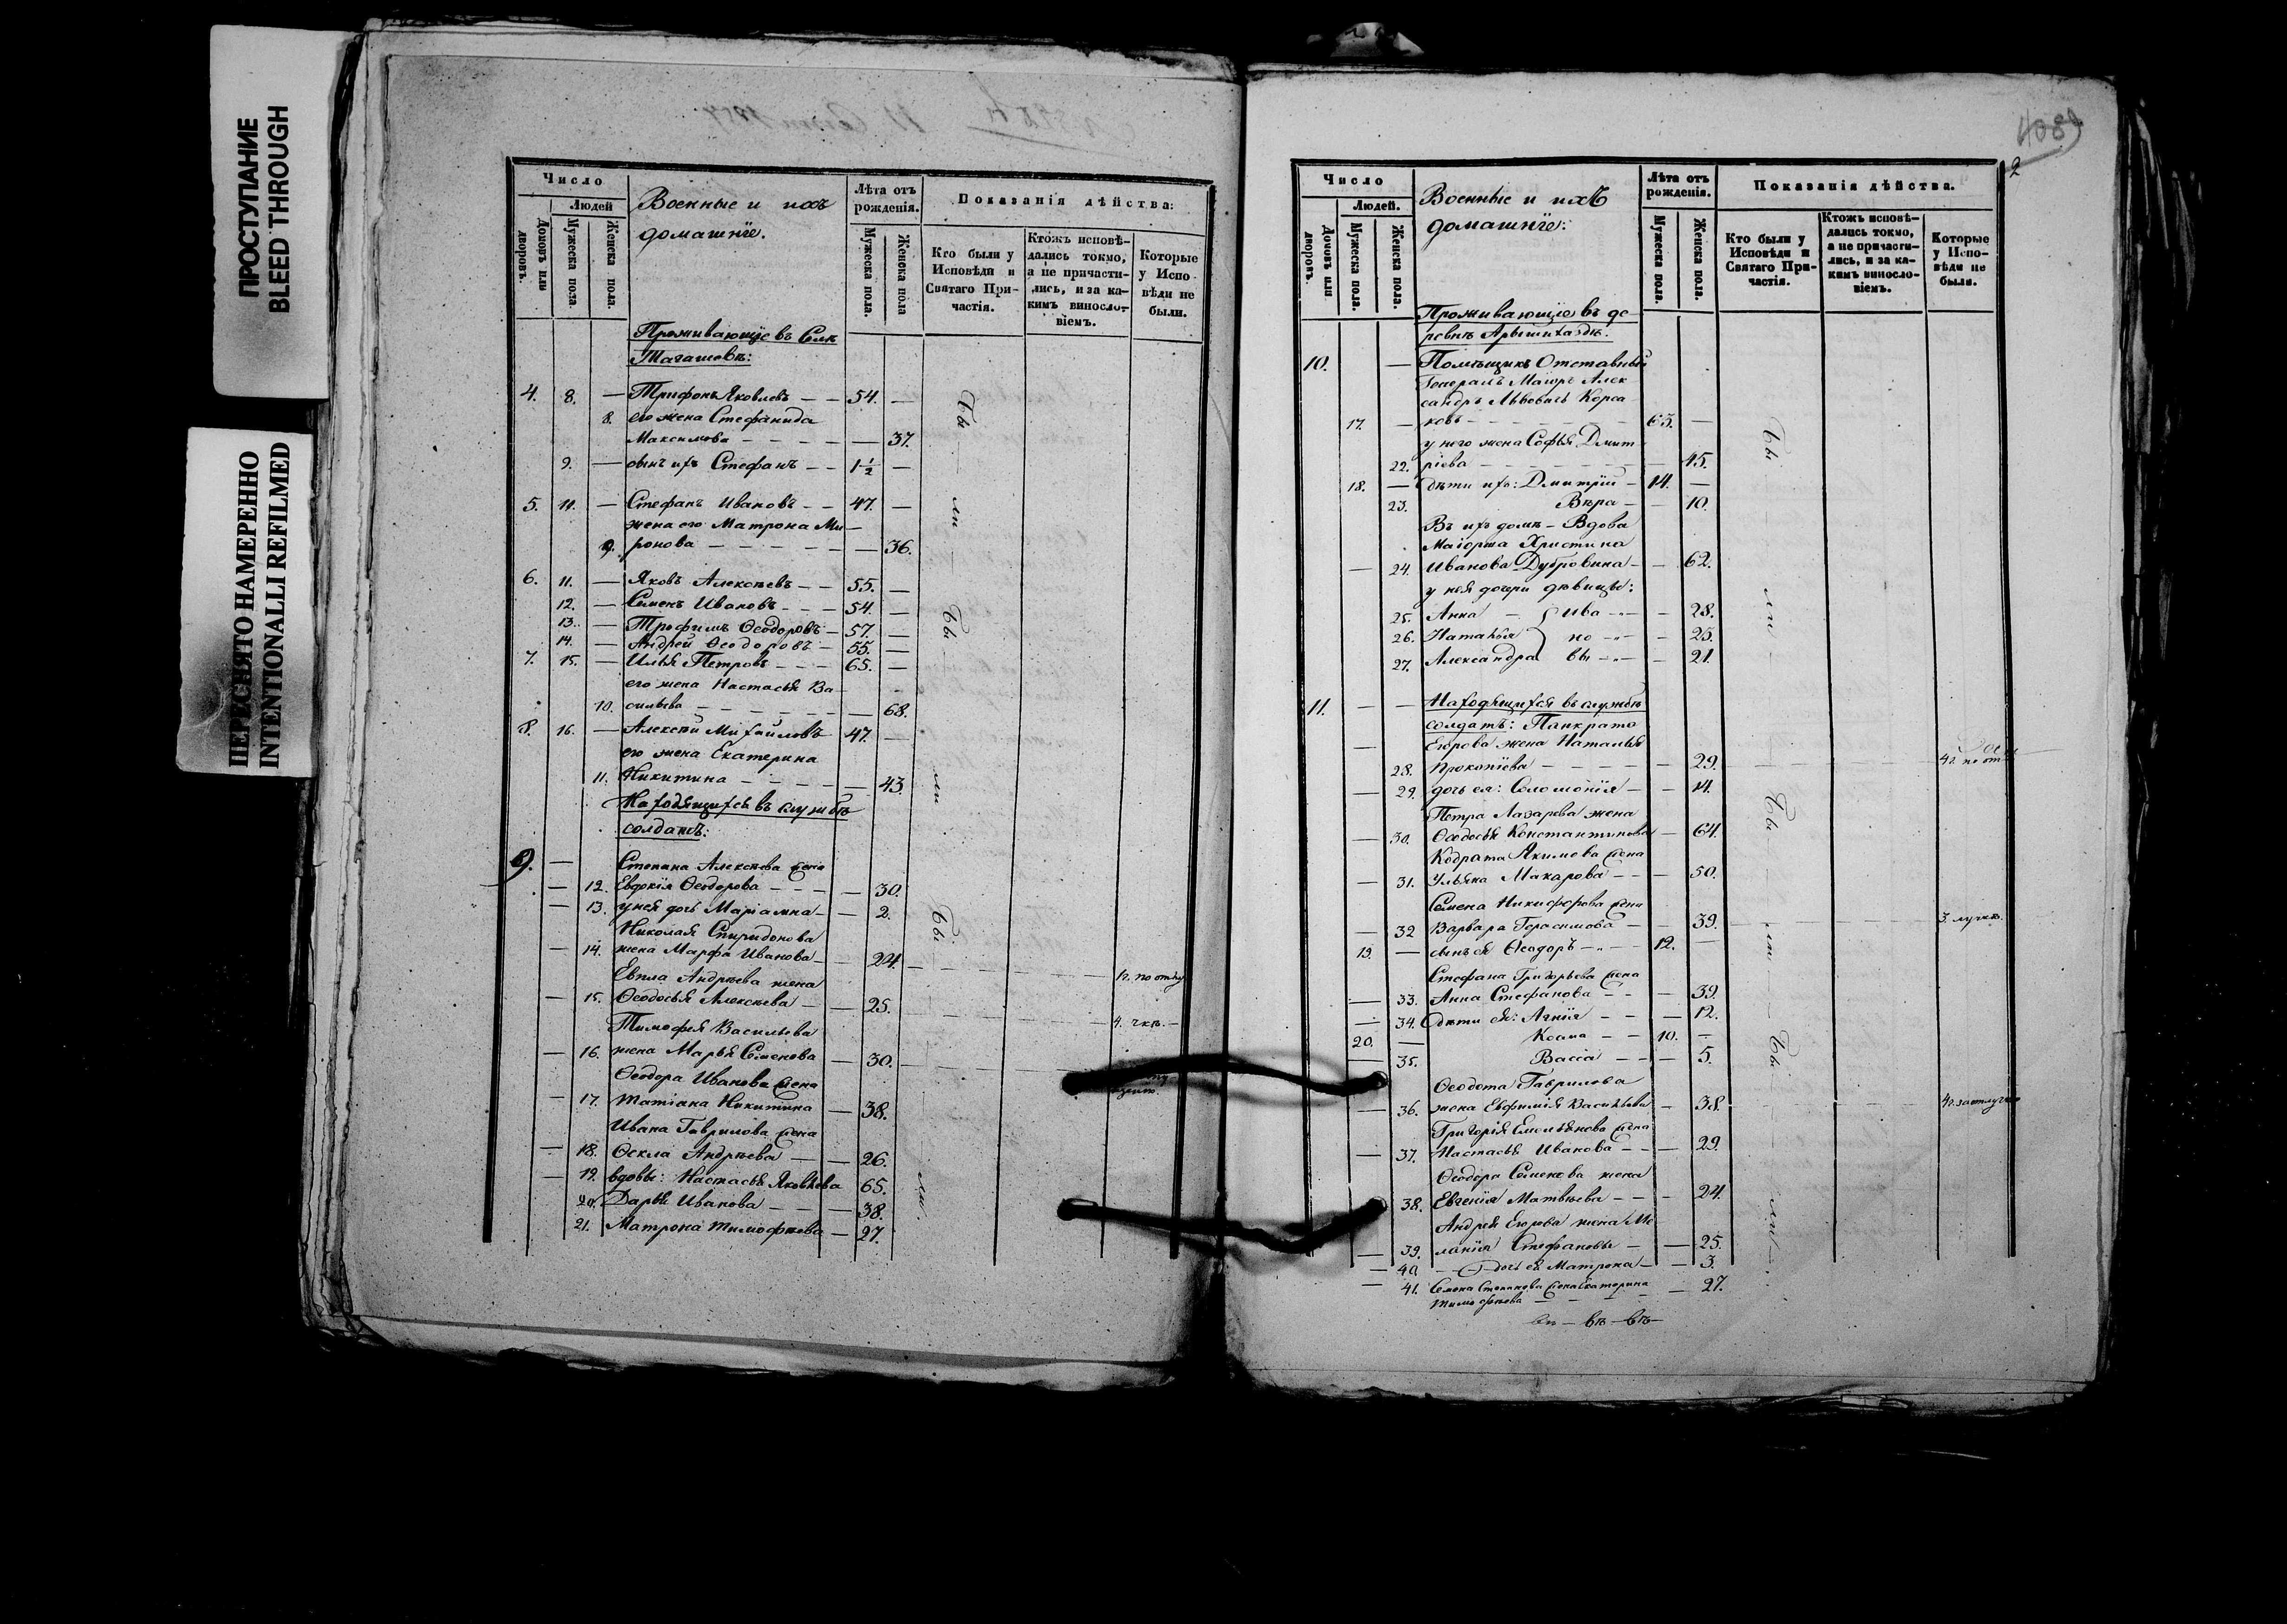 ПРОСТУПАНИЕ
BLEED THROUGH
ПЕРЕСНЯТО НАМЕРЕННО
INTENTIONALLI REFILMED
Число
Людей
Домовъ или дворовъ.
Мужеска пола.
Женска пола.
Военные и ихъ
домашнїе.
Лѣта отъ рожденія.
Мужеска пола.
Женска пола
Показанія дѣйства:
Кто были у Исповѣди и Святаго Причастія.
Ктожъ исповѣдались токмо, а не причастились, и за какимъ винословіемъ.
Которые у Исповѣди не были.
Проживающїе въ Селѣ
4. 8. — Трифонъ Яковлевъ — — 54. —
8. его жена Стефанида
Максимова — — — — — 37.
9. — сынъ ихъ Стефанъ — — 1½ —
5. 11. — Стефанъ Ивановъ — — 47. —
жена его Матрона Ми—
9. ронова — — — — — — 36.
6. 11. — Яковъ Алексѣевъ — — 55. —
12. — Семенъ Ивановъ — — — 54. —
13. — Трофимъ Ѳеодоровъ — 57. —
14. — Андрей Ѳеодоровъ — 55. —
7. 15. — Илья Петровъ — — — 65. —
его жена Настасья Ва—
10. сильева — — — — — — 68.
8. 16. — Алексѣй Михайловъ 47. —
его жена Екатерина
11. Никитина — — — — — 43.
Находящихся въ службѣ
солдатъ:
9. — Степана Алексѣева жена
— 12. Евдокія Ѳеодорова — — — — 30.
— 13. у нея дочь Маріамна — — 2.
Николая Спиридонова
— 14. жена Марфа Иванова — — 24.
Евпла Андрѣева жена
— 15. Ѳеодосья Алексѣева — — 25.
Тимофея Васильева
— 16. жена Марья Семенова — 30.
Ѳеодора Иванова жена
— 17. Татіана Никитина — 38.
Ивана Гаврилова жена
— 18. Ѳекла Андрѣева — — 26.
— 19. вдовы: Настасья Яковлева 65.
20. Дарья Иванова — — — 38.
21. Матрона Тимофѣева — 27.
Бы — ли — Бы — ли
Бы — ли.
408
2
Число
Людей.
Домовъ или дворовъ.
Мужеска пола.
Женска пола.
Военные и ихъ
домашнїе:
Лѣта отъ рожденія.
Мужеска пола.
Женска пола.
Показанія дѣйства.
Кто были у Исповѣди и Святаго Причастія.
Ктожъ исповѣдались токмо, а не причастились, и за какимъ винословіемъ.
Которые у Исповѣди не были.
Проживающїе въ де
ревнѣ
10. — Помѣщикъ Отставный
Генералъ Маїоръ Алек
сандръ Львовичъ Корса
17. — ковъ — — — 63. —
у него жена Софья Дмит
22. ріева — — — — 45.
18. — дѣти ихъ: Дмитрїй — 14. —
23. Вѣра — — 10.
Въ ихъ домѣ — Вдова
Маіорша Христина
— 24. Иванова Дубровина — — 62.
у нея дочери дѣвицы:
25. Анна — Ива — — 28.
26. Наталья но — — 25.
27. Александра вы — — 21.
11. — — Находящихся въ службѣ
солдатъ: Панкрата
— Егорова жена Наталья
28. Прокопїева — — — — 29.
— 29. дочь ея: Соломонїя — — 14.
Петра Лазарева жена
— 30. Ѳеодосья Константинова — 64.
Кодрата Якимова жена
— 31. Ульяна Макарова — — — 50.
Семена Никифорова жена
— 32 Варвара Герасимова — — 39.
19. — сынъ ея Ѳеодоръ — — 12. —
Стефана Григорьева жена
— 33. Анна Стефанова — — — 39.
— 34. Дѣти ея: Агнїя — — — 12.
20. — Косма — — 10. —
— 35. Васса — — — 5.
Ѳеодота Гаврилова
— 36. жена Евфимїя Васильева — 38.
Григорїя Емельянова жена
— 37. Настасья Иванова — — — 29.
Ѳеодора Семенова жена
38. Евгенїя Матвѣева — — — 24.
Андрея Егорова жена Ме
— 39. ланїя Стефанова — — 25.
— 40 — дочь ея Матрона — — 3.
— 41. Семена Степанова жена Екатерина — 27.
Тимофѣева — — —
Бы — ли — Бы — ли — Бы — ли — .